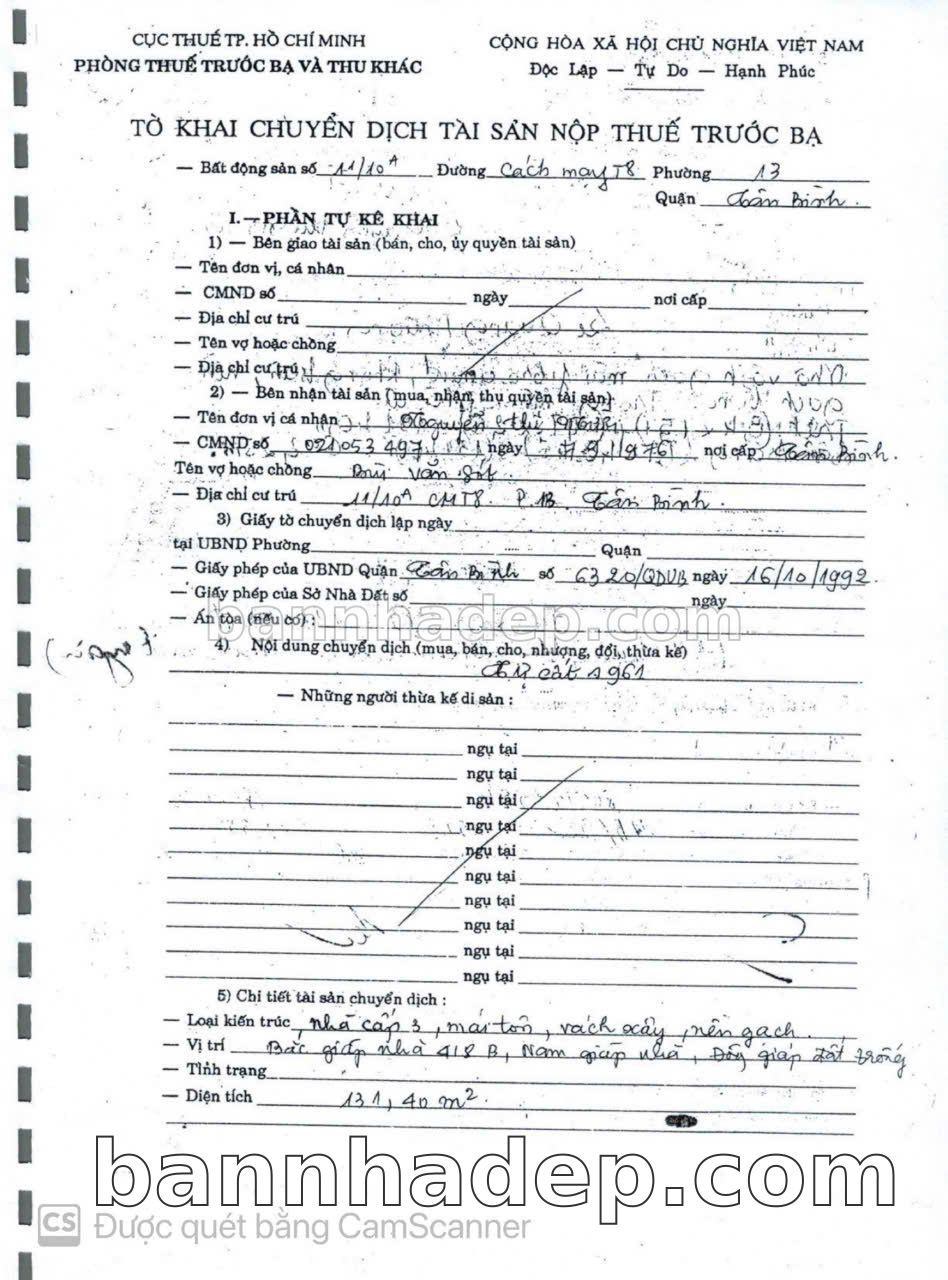 CỤC THUẾ TP. HỒ CHÍ MINH
PHÒNG THUẾ TRƯỚC BẠ VÀ THU KHÁC
CỘNG HÒA XÃ HỘI CHỦ NGHĨA VIỆT NAM
Độc Lập — Tự Do — Hạnh Phúc
TỜ KHAI CHUYỂN DỊCH TÀI SẢN NỘP THUẾ TRƯỚC BẠ
— Bất động sản số 11/10A Đường Cách mạng T8 Phường 13
Quận Tân Bình.
I. — PHẦN TỰ KÊ KHAI
1) — Bên giao tài sản (bán, cho, ủy quyền tài sản)
— Tên đơn vị, cá nhân
— CMND số ngày nơi cấp
— Địa chỉ cư trú
— Tên vợ hoặc chồng
— Địa chỉ cư trú
2) — Bên nhận tài sản (mua, nhận, thụ quyền tài sản)
— Tên đơn vị cá nhận Nguyễn Thị
— CMND số 021053497 ngày nơi cấp Tân Bình.
Tên vợ hoặc chồng Bùi Văn
— Địa chỉ cư trú 11/10A CMT8. P.13. Tân Bình.
3) Giấy tờ chuyển dịch lập ngày
tại UBND Phường Quận
— Giấy phép của UBND Quận Tân Bình số 6320/QDUB ngày 16/10/1992.
— Giấy phép của Sở Nhà Đất số ngày
— Án tòa (nếu có) :
bannhadep.com
4) Nội dung chuyển dịch (mua, bán, cho, nhượng, đổi, thừa kế)
Tự cất 1961
— Những người thừa kế di sản :
ngụ tại
ngụ tại
ngụ tại
ngụ tại
ngụ tại
ngụ tại
ngụ tại
ngụ tại
ngụ tại
ngụ tại
5) Chi tiết tài sản chuyển dịch :
— Loại kiến trúc nhà cấp 3, mái tôn, vách xây, nền gạch.
— Vị trí Bắc giáp nhà 418 B, Nam giáp nhà, Đông giáp đất trống
— Tình trạng
— Diện tích 131,40 m2.
bannhadep.com
CS Được quét bằng CamScanner